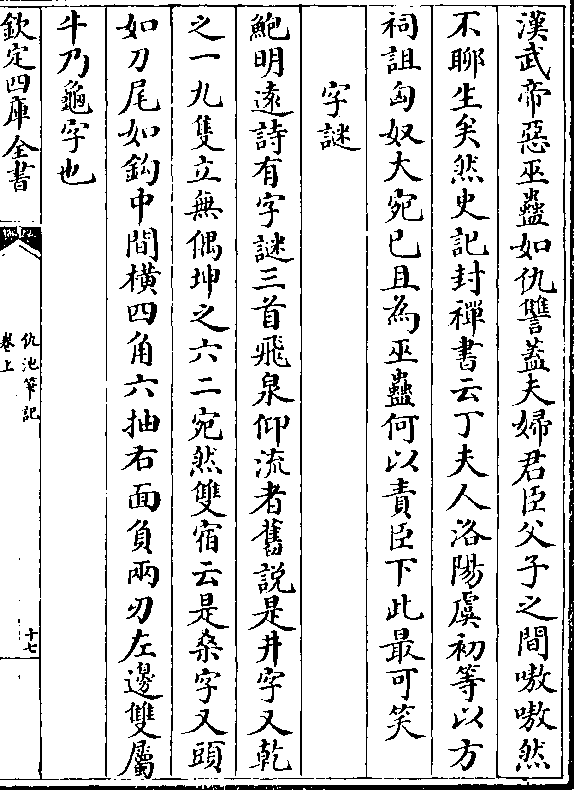 漢武帝惡巫蠱如仇讐蓋夫婦君臣父子之間嗷嗷然
不聊生矣然史記封禪書云丁夫人洛陽虞初等以方
祠詛匈奴大宛已且為巫蠱何以責臣下此最可笑
字謎
鮑明逺詩有字謎三首飛泉仰流者舊説是井字又乾
之一九隻立無偶坤之六二宛然雙宿云是桑字又頭
如刀尾如鈎中間橫四角六抽右面負兩刃左邊雙屬
牛乃龜字也
欽定四庫全書
仇池筆記
卷上
十七